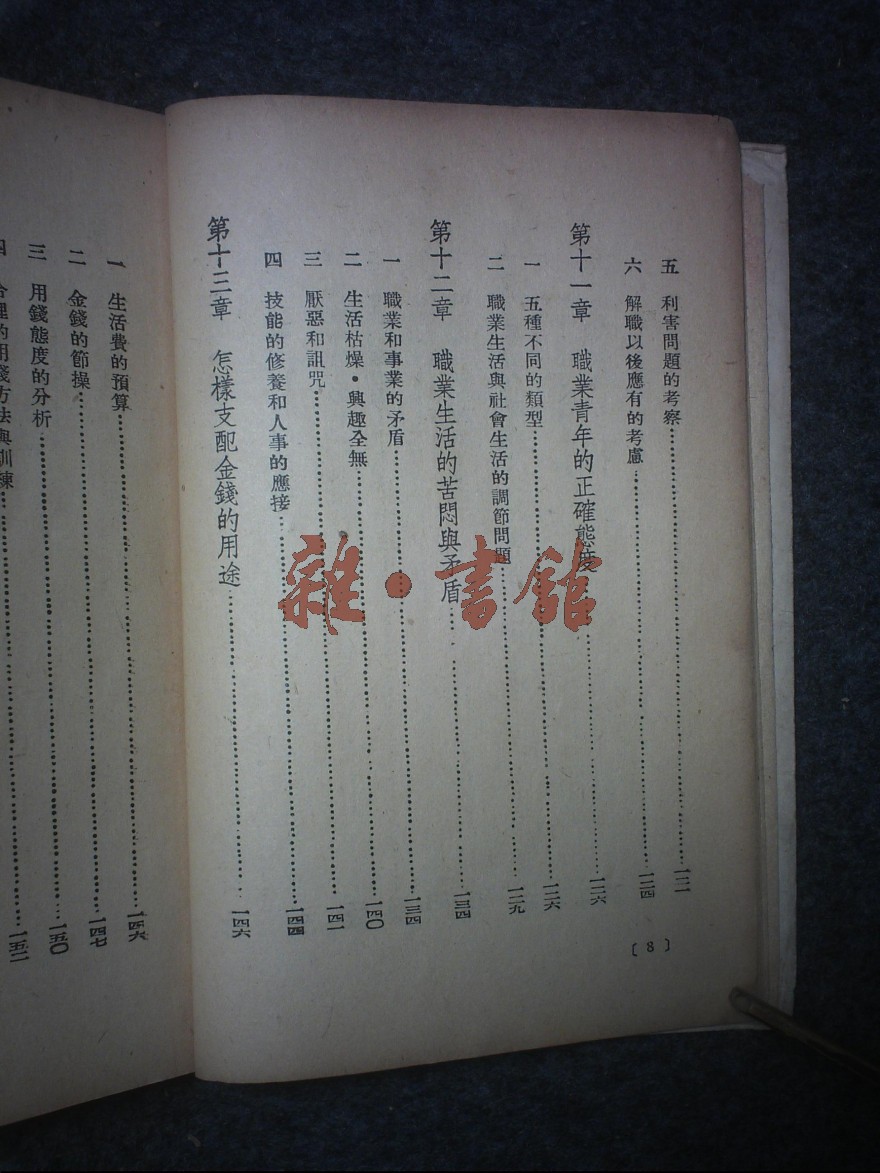 五　利害問題的考察……一二一
六　解職以後應有的考慮……一二四
第十一章　職業青年的正確態度……一二六
一　五種不同的類型……一二六
二　職業生活與社會生活的調節問題……一二九
第十二章　職業生活的苦悶與矛盾……一三四
一　職業和事業的矛盾……一三四
二　生活枯燥・興趣全無……一四〇
三　厭惡和詛咒……一四一
四　技能的修養和人事的應接……一四四
第十三章　怎樣支配金錢的用途……一四六
〔8〕
一　生活費的預算……一四六
二　金錢的節操……一四七
三　用錢態度的分析……一五〇
四　合理的用錢方法與訓練……一五二
雜・書館